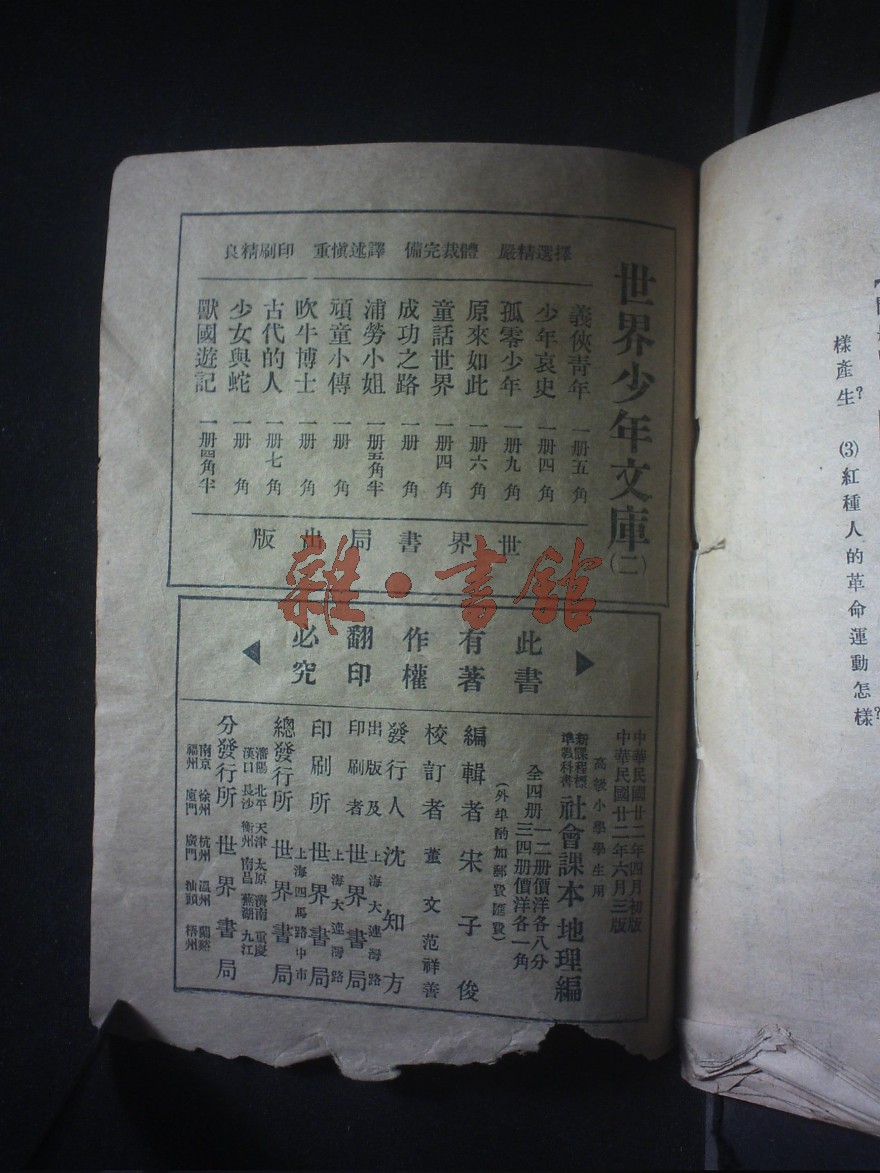 世界少年文庫(二)
擇選精嚴 體裁完備 譯述慎重 印刷精良
義俠青年 一册五角
少年哀史 一册四角
孤零少年 一册九角
原來如此 一册六角
童話世界 一册四角
成功之路 一册 角
浦勞小姐 一册五角半
頑童小傳 一册 角
吹牛博士 一册 角
古代的人 一册七角
少女與蛇 一册 角
獸國遊記 一册四角半
世界書局出版
此書
有著
作權
翻印
必究
中華民國廿二年四月初版
中華民國廿二年六月三版
高級小學學生用
新課程標準教科書 社會課本地理編
全四册 一二册價洋各八分
三四册價洋各一角
(外埠酌加郵費匯費)
編輯者 宋子俊
校訂者 董文 范祥善
發行人 沈知方
出版及印刷者 上海大連灣路 世界書局
印刷所 上海大連灣路 世界書局
總發行所 上海四馬路中市 世界書局
瀋陽 北平 天津 太原 濟南 重慶
漢口 長沙 衡州 南昌 蕪湖 九江
分發行所 世界書局
南京 徐州 杭州 溫州 蘭谿
福州 廈門 廣門 汕頭 梧州
樣產生? (3)紅種人的革命運動怎樣?
雜·書館